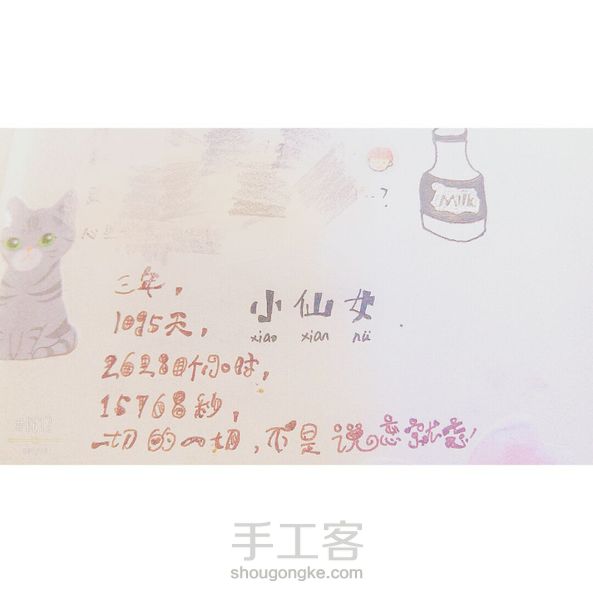 Milk
...?
三年，
小仙女
xiao xian nü
1095天，
26280个小时，
15768秒，
一切的一切，不是说忘就忘！
手工客
shougongke.com